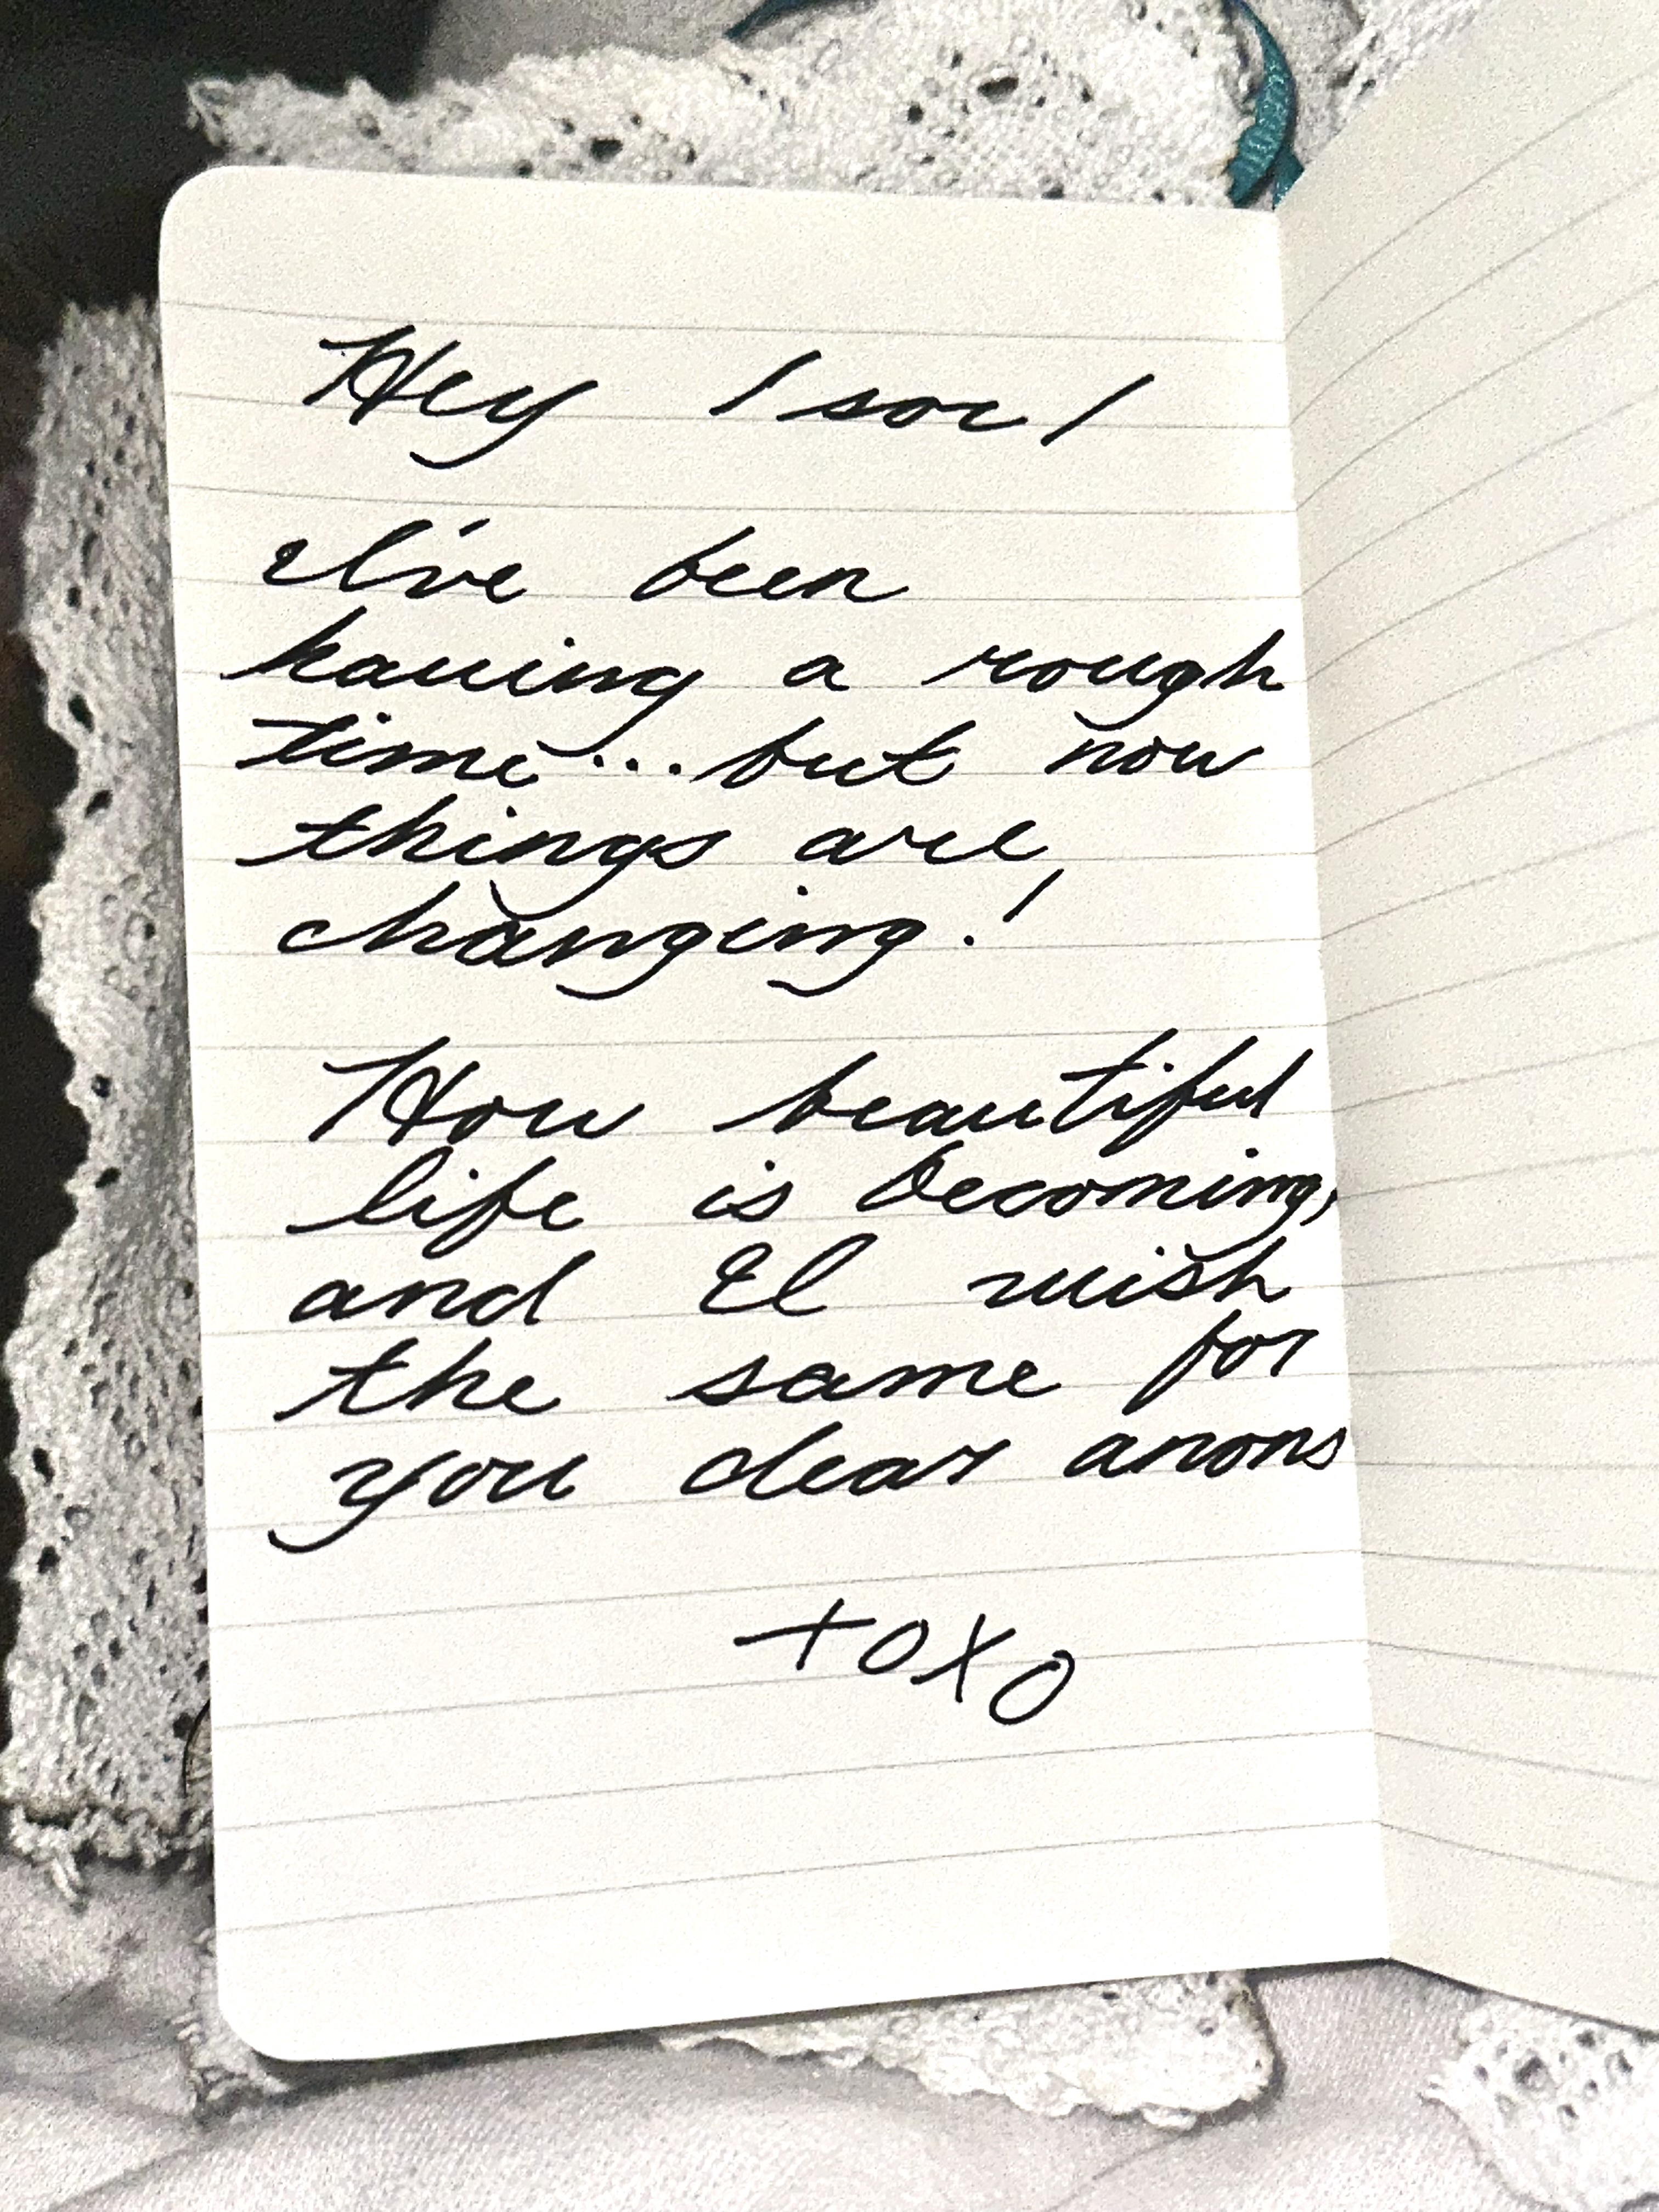 Hey /soc/
I've been
having a rough
time... but now
things are
changing!
How beautiful
life is becoming,
and I wish
the same for
you dear anons
xoxo